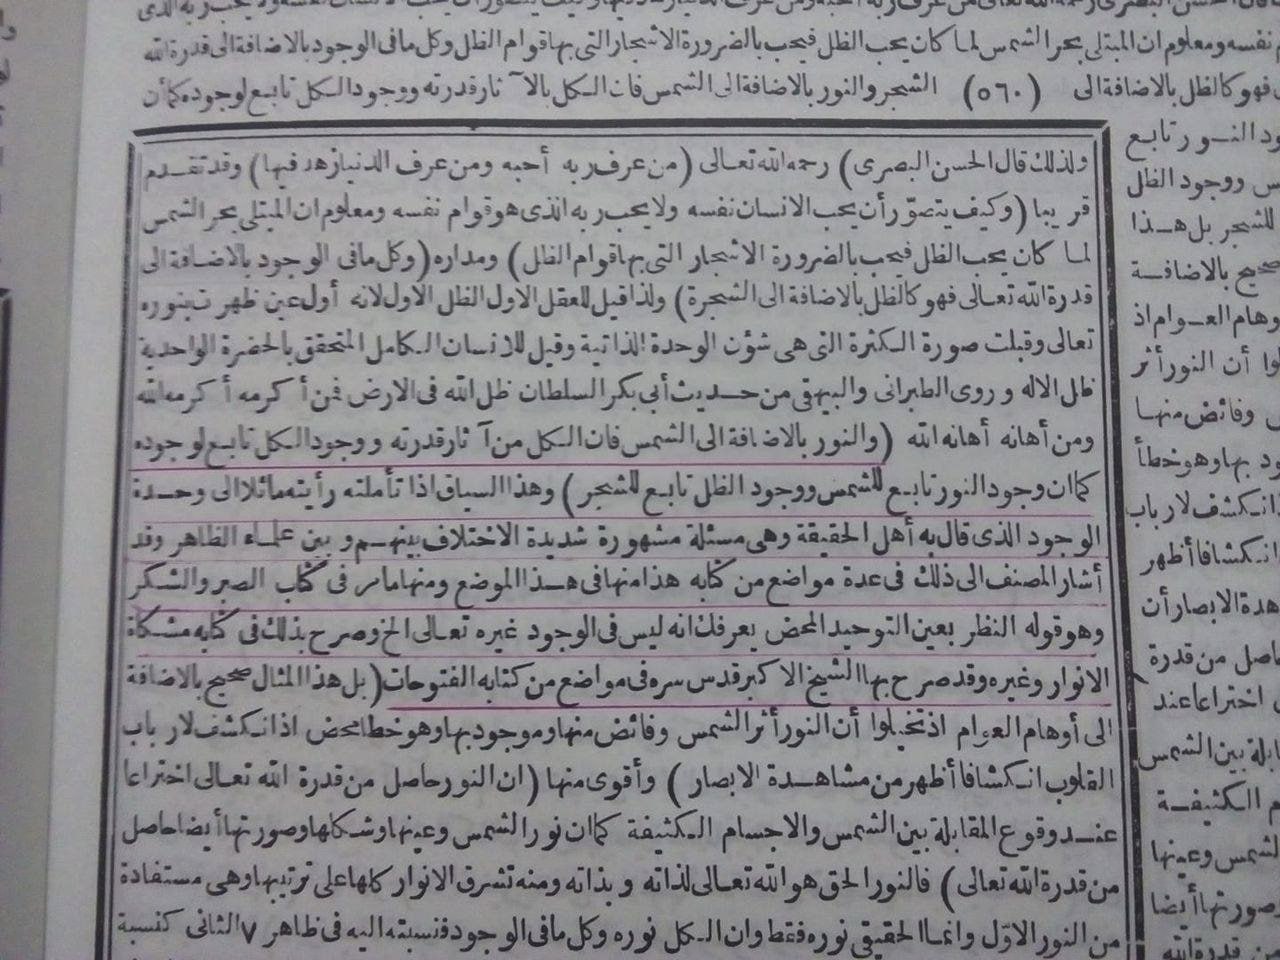 نفسه ومعلوم ان المبتلى بحر الشمس لما كان يحب الظل فيحب بالضرورة الاشجار التى بها قوام الظل وكل مافى الوجود بالاضافة الى قدرة الله
فهو كالظل بالاضافة الى (٥٦٠) الشجر والنور بالاضافة الى الشمس فان الكل بالا آثار قدرته ووجود الكل تابع لوجوده كمأن
ولذلك قال الحسن البصرى) رحمه الله تعالى (من عرف ربه أحبه ومن عرف الدنيا زهد فيها) وقد تقدم
قريبا (وكيف يتصوّر أن يحب الانسان نفسه ولا يحب ربه الذى هو قوام نفسه ومعلوم ان المبتلى بحر الشمس
لما كان يحب الظل فيحب بالضرورة الاشجار التى بها قوام الظل) ومداره (وكل مافى الوجود بالاضافة الى
قدرة الله تعالى فهو كالظل بالاضافة الى الشجرة) ولذا قيل للعقل الاول الظل الاول لانه أول عين ظهرت بنوره
تعالى وقبلت صورة الكثرة التى هى شؤن الوحدة الذاتية وقيل للانسان الكامل المتحقق بالحضرة الواحدية
ظل الاله وروى الطبرانى والبيهقى من حديث أبى بكر السلطان ظل الله فى الارض فمن أكرمه أكرمه الله
ومن أهانه أهانه الله (والنور بالاضافة الى الشمس فان الكل من آثار قدرته ووجود الكل تابع لوجوده
كما ان وجود النور تابع للشمس ووجود الظل تابع للشجر) وهذا السياق اذا تأملته رأيته مائلا الى وحدة
الوجود الذى قال به أهل الحقيقة وهى مسئلة مشهورة شديدة الاختلاف بينهم وبين علماء الظاهر وقد
أشار المصنف الى ذلك فى عدة مواضع من كتابه هذا منها فى هذا الموضع ومنها مامر فى كتاب الصبر والشكر
وهو قوله النظر بعين التوحيد المحض يعرفك انه ليس فى الوجود غيره تعالى الخ وصرح بذلك فى كتابه مشكاة
الانوار وغيره وقد صرح بها الشيخ الاكبر قدس سره فى مواضع من كتابه الفتوحات (بل هذا المثال صحيح بالاضافة
الى أوهام العوام اذ تخيلوا أن النور أثر الشمس وفائض منها وموجود بها وهو خطأ محض اذ انكشف لارباب
القلوب انكشافا أظهر من مشاهدة الابصار) وأقوى منها (ان النور حاصل من قدرة الله تعالى اختراعا
عند وقوع المقابلة بين الشمس والاجسام الكثيفة كما ان نور الشمس وعينها وشكلها وصورتها أيضا حاصل
من قدرة الله تعالى) فالنور الحق هو الله تعالى لذاته وبذاته ومنه تشرق الانوار كلها على ترتيبها وهى مستفادة
من النور الاوّل وانما الحقيقى نوره فقط وان الكل نوره وكل مافى الوجود فنسبته اليه فى ظاهر ٧ الثانى كنسبة
ود النور تابع
ووجود الظل
للشجر بل هذا
صحيح بالاضافة
وهام العوام اذ
لوا أن النور أثر
وفائض منها
ود بها وهو خطأ
انكشف لارباب
انكشافا أظهر
هدة الابصار أن
حاصل من قدرة
اختراعا عند
ابلة بين الشمس
الكثيفة
لشمس وعينها
صورتها أيضا
من قدرة الله